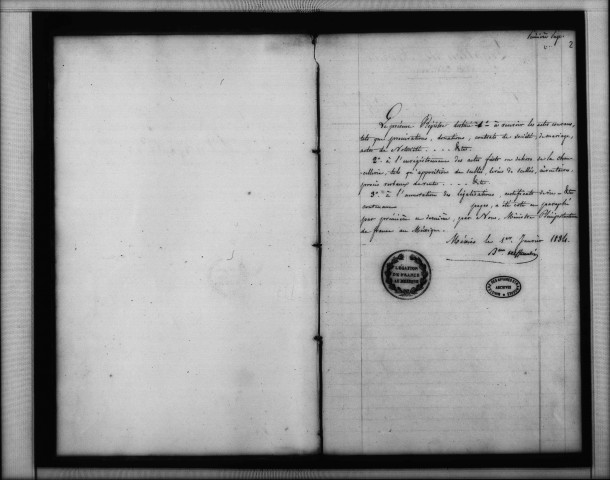 Première page
2
Le présent Registre destiné 1° à recevoir les actes communs,
tels que procurations, donations, contrats de société, de mariage,
actes de Notoriété . . . . &a
2° à l'enregistrement des actes faits en dehors de la chan
cellerie, tels qu'apposition de scellés, levée de scellés, inventaires,
procès verbaux de vente . . . . &a
3° à l'annotation des légalisations, certificats de vie &a
contenant pages, a été coté et paraphé
par première et dernière, par Nous, Ministre Plénipotentiaire
de france au Mexique.
Mexico le 1er Janvier 1834.
Bon Deffaudis
LÉGATION
DE FRANCE
AU MEXIQUE
ARCHIVES